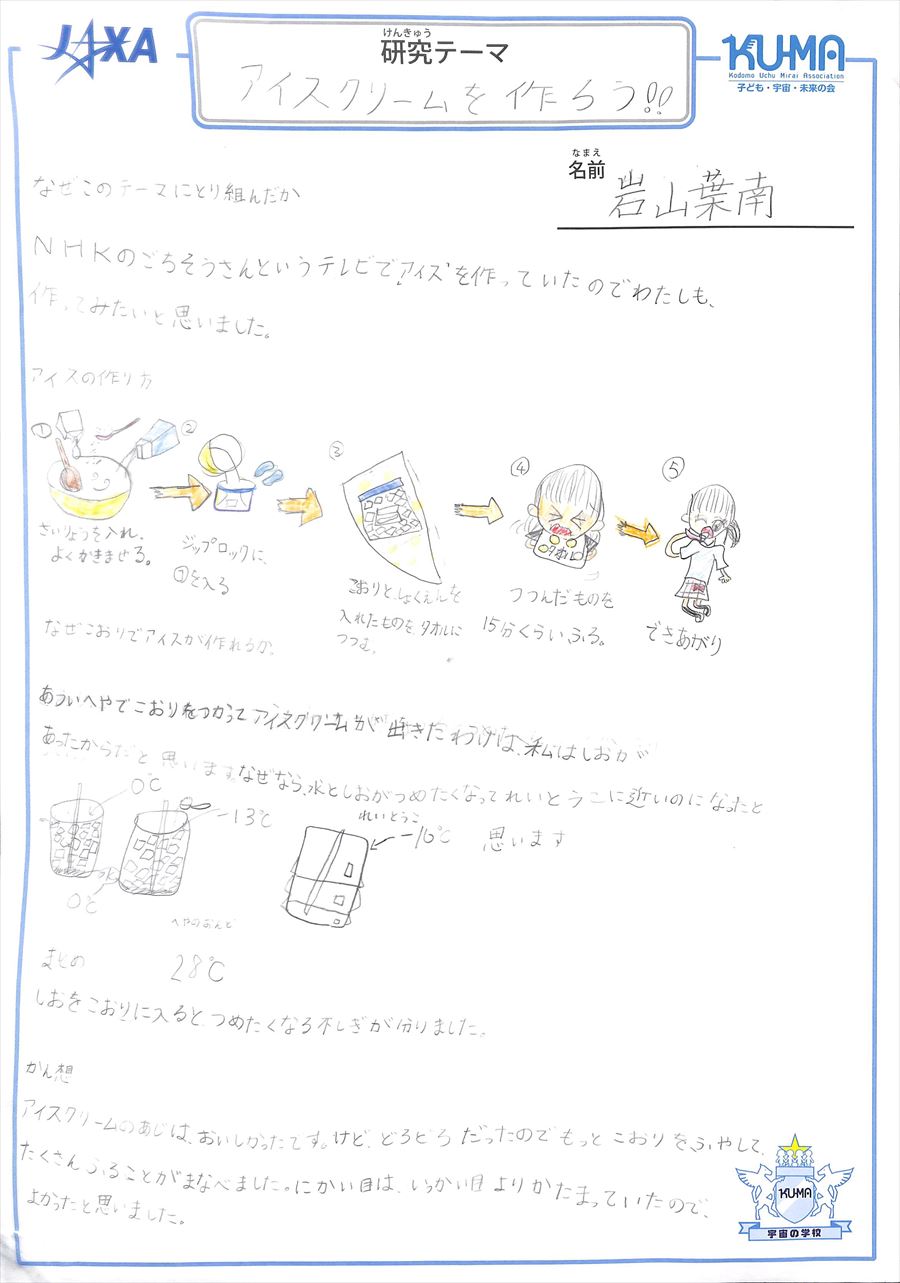 JAXA
けんきゅう
研究テーマ
アイスクリームを作ろう!!
KU-MA
Kodomo Uchu Mirai Association
子ども・宇宙・未来の会
なまえ
名前
岩山葉南
なぜこのテーマにとり組んだか
NHKのごちそうさんというテレビでアイスを作っていたのでわたしも、
作ってみたいと思いました。
アイスの作り方
①
ざいりょうを入れ、
よくかきまぜる。
②
ジップロックに、
①を入る
③
こおりと、しょくえんを
入れたものを、タオルに
つつむ。
④
タオル
つつんだものを
15分くらい、ふる。
⑤
できあがり
なぜこおりでアイスが作れるか。
あついへやでこおりをつかってアイスクリームが出きたわけは、私はしおが
あったからだと思います。なぜなら、水としおがつめたくなってれいとうこに近いのになったと
思います
0℃
0℃
-13℃
れいとうこ
-16℃
へやのおんど
28℃
まとめ
しおをこおりに入ると、つめたくなるふしぎが分りました。
かん想
アイスクリームのあじは、おいしかったです。けど、どろどろだったのでもっとこおりをふやして、
たくさんふることがまなべました。にかい目は、いっかい目よりかたまっていたので、
よかったと思いました。
KUMA
宇宙の学校